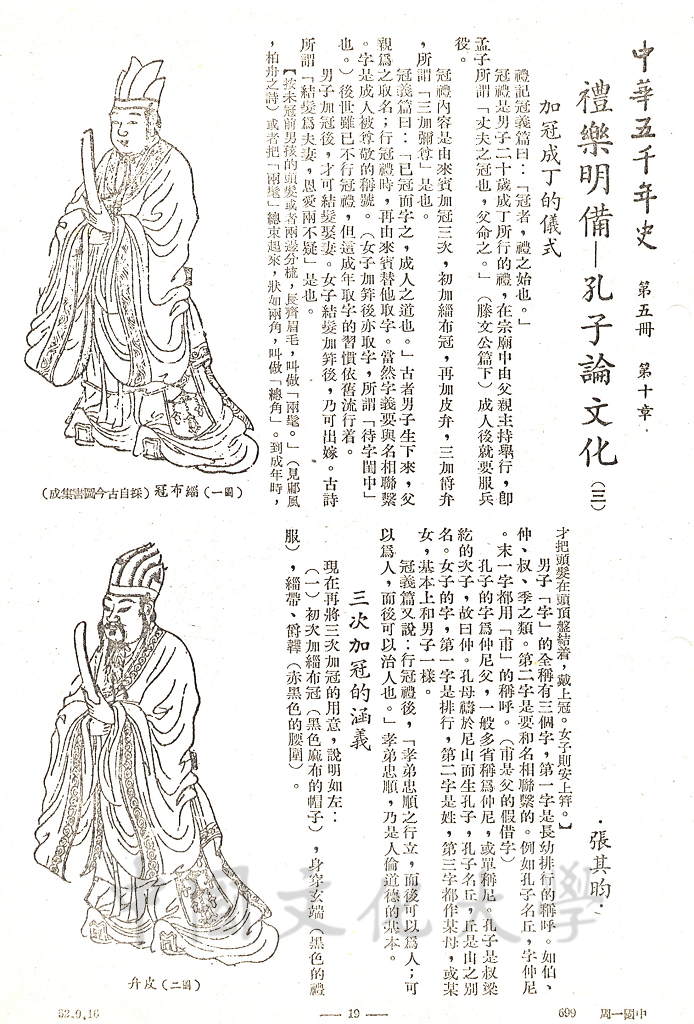 中華五千年史 第五冊 第十章·
禮樂明備—孔子論文化(三)
·張其昀·
加冠成丁的儀式
禮記冠義篇曰:「冠者,禮之始也。」
冠禮是男子二十歲成丁所行的禮,在宗廟中由父親主持舉行,卽
孟子所謂「丈夫之冠也,父命之。」(滕文公篇下)成人後就要服兵
役。
冠禮內容是由來賓加冠三次,初加緇布冠,再加皮弁,三加爵弁
,所謂「三加彌尊」是也。
冠義篇曰:「已冠而字之,成人之道也。」古者男子生下來,父
親爲之取名;行冠禮時,再由來賓替他取字。當然字義要與名相聯繫
。字是成人被尊敬的稱號。(女子加笄後亦取字,所謂「待字閨中」
也。)後世雖已不行冠禮,但這成年取字的習慣依舊流行着。
男子加冠後,才可結髮娶妻。女子結髮加笄後,乃可出嫁。古詩
所謂「結髮爲夫妻,恩愛兩不疑」是也。
【按未冠前男孩的頭髮或者兩邊分梳,長齊眉毛,叫做「兩髦。」(見鄘風
,柏舟之詩)或者把「兩髦」總束起來,狀如兩角,叫做「總角」。到成年時,
才把頭髮在頭頂盤結着,戴上冠。女子則安上笄。】
男子「字」的全稱有三個字,第一字是長幼排行的稱呼。如伯、
仲、叔、季之類。第二字是要和名相聯繫的。例如孔子名丘,字仲尼
。末一字都用「甫」的稱呼。(甫是父的假借字)
孔子的字爲仲尼父,一般多省稱爲仲尼,或單稱尼。孔子是叔梁
紇的次子,故曰仲。孔母禱於尼山而生孔子,孔子名丘,丘是山之別
名。女子的字,第一字是排行,第二字是姓,第三字都作某母,或某
女,基本上和男子一樣。
冠義篇又說:行冠禮後,「孝弟忠順之行立,而後可以爲人;可
以爲人,而後可以治人也。」孝弟忠順,乃是人倫道德的基本。
三次加冠的涵義
現在再將三次加冠的用意,說明如左:
(一)初次加緇布冠(黑色麻布的帽子),身穿玄端(黑色的禮
服),緇帶、爵韠(赤黑色的腰圍)。
(圖一)緇布冠(採自古今圖書集成)
(圖二)皮弁
中國文化大學
中國一周 699
— 19 —
52.9.16